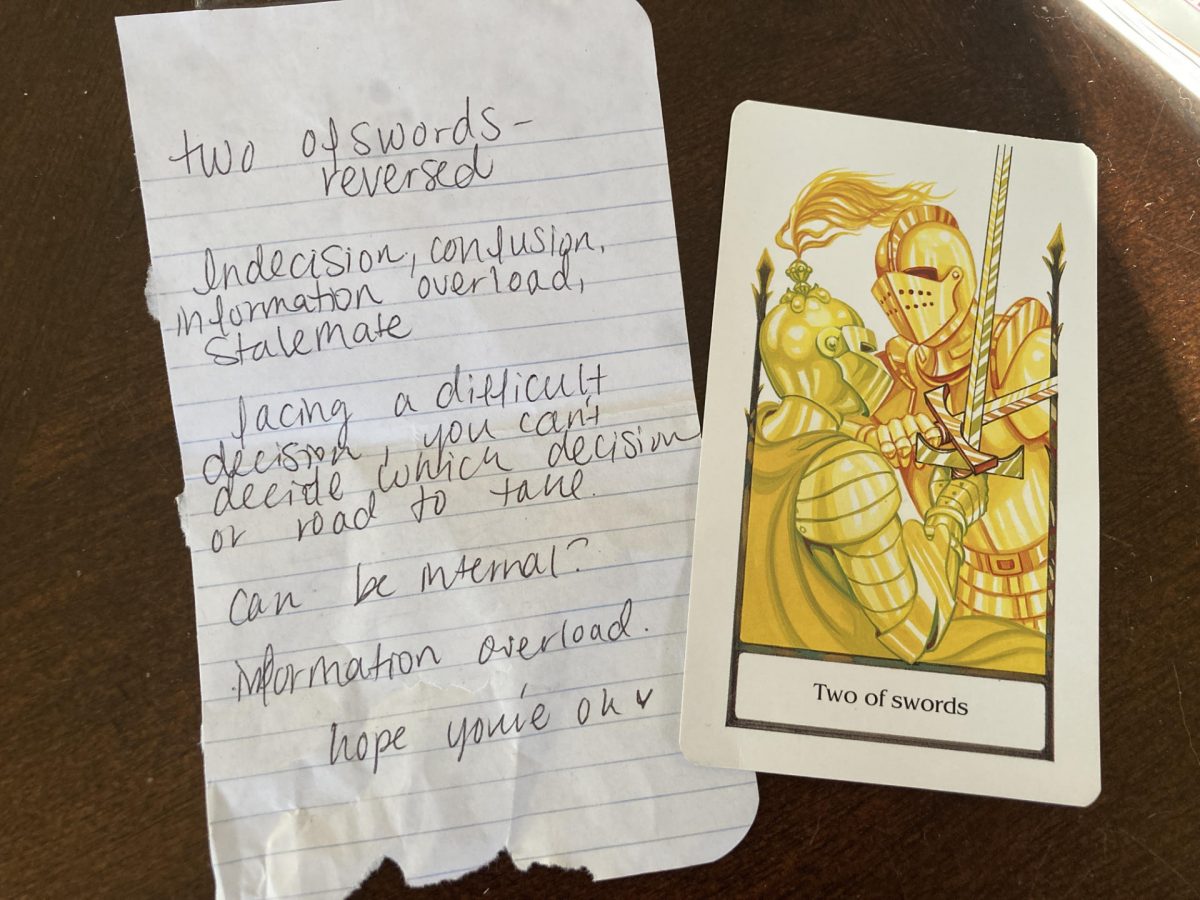 two of swords -
reversed
Indecision, confusion,
information overload,
stalemate
facing a difficult
decision, you can't
decide which decision
or road to take.
can be internal?
information overload.
hope you're ok
Two of swords